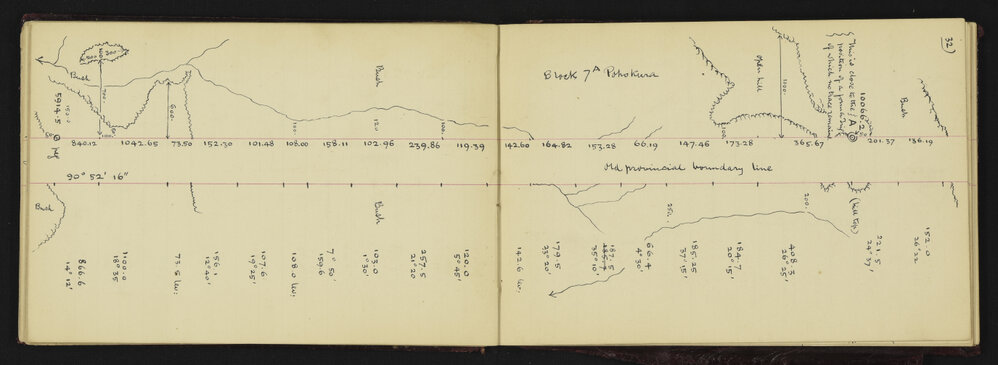 32)
Bush
800
300
100
700
1000
Bush
600
150.0
5914.5
100
100.
120
100.
Bush
Block 7A Pohokura
Open hill
100
1000
This is close to the
position of a former
of which no trace remains
10066.2
A
Bush
840.12
1042.65
73.50
152.30
101.48
108.00
158.11
102.96
239.86
119.39
142.60
164.82
153.28
66.19
147.46
173.28
365.67
201.37
136.19
90° 52' 16"
Old provincial boundary line
Bush
Bush
250.
200.
(hill top)
866.6
14° 12'
1100.0
18° 35'
73.5 lev:
156.1
12° 40'
107.6
19° 25'
108.0 lev:
159.6
7° 50'
103.0
1° 30'
257.5
21° 20
120.0
5° 45'
142.6 lev:
179.5
23° 20'
187.5
35° 10'
66.4
4° 30'
185.25
37° 15'
184.7
20° 15'
408.3
26° 25'
221.5
24° 37'
152.0
26° 32